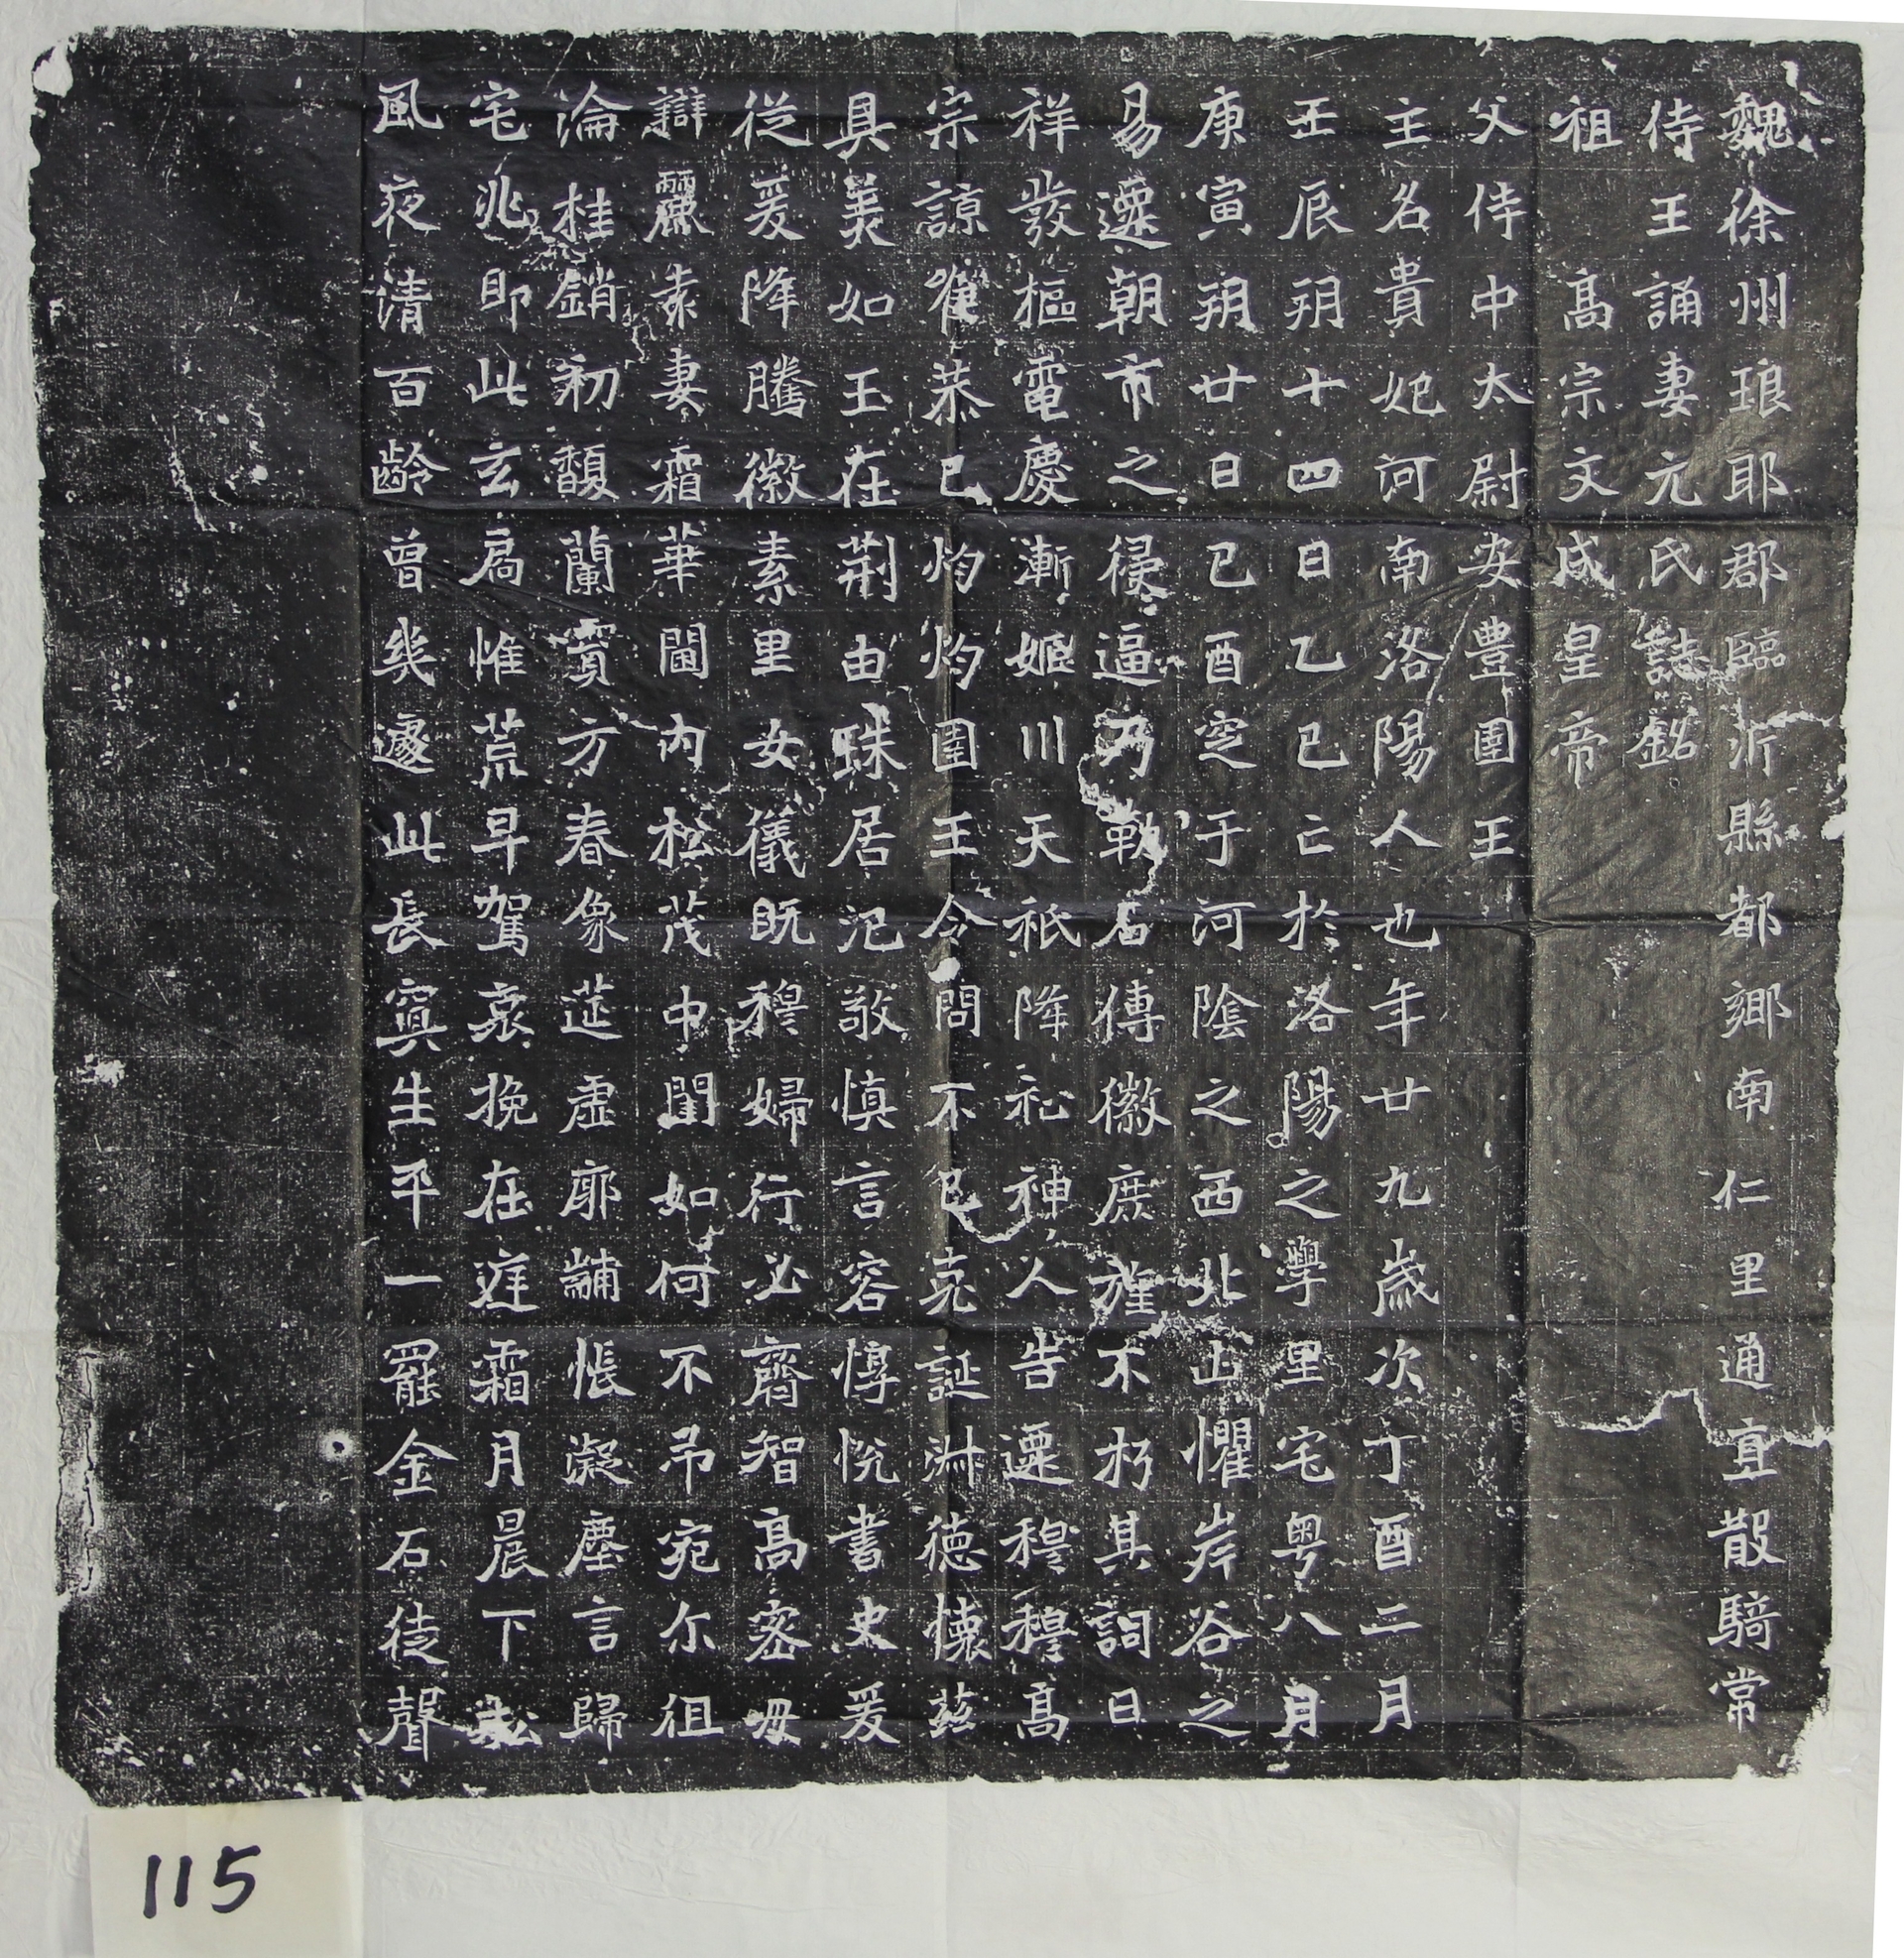 魏徐州琅耶郡臨沂縣都鄉南仁里通直散騎常
侍王誦妻元氏誌銘
祖高宗文成皇帝
父侍中太尉安豊圉王
主名貴妃河南洛陽人也年廿九歲次丁酉二月
壬辰朔十四日乙巳亡於洛陽之學里宅粵八月
庚寅朔廿日己酉窆于河陰之西北山懼岸谷之
易遷朝市之侵逼乃勒石傳徽庶旌不朽其詞曰
祥發樞電慶漸姬川天祇降祉神人告遷穆穆高
宗諒唯恭己灼灼圉王令問不已克誕淋德懷茲
具美如玉在荊由珠居汜敬慎言容惇悅書史爰
從爰降騰徽素里女儀既穆婦行必齊智高密母
辯麗袁妻霜華閫內松茂中閨如何不弔宛尒徂
淪桂銷初馥蘭賓方春象筵虛廓黼悵凝塵言歸
宅兆即此玄扃惟荒早駕哀挽在逛霜月晨下松
風夜清百齡曾幾遽此長寘生平一罷金石徒聲
115